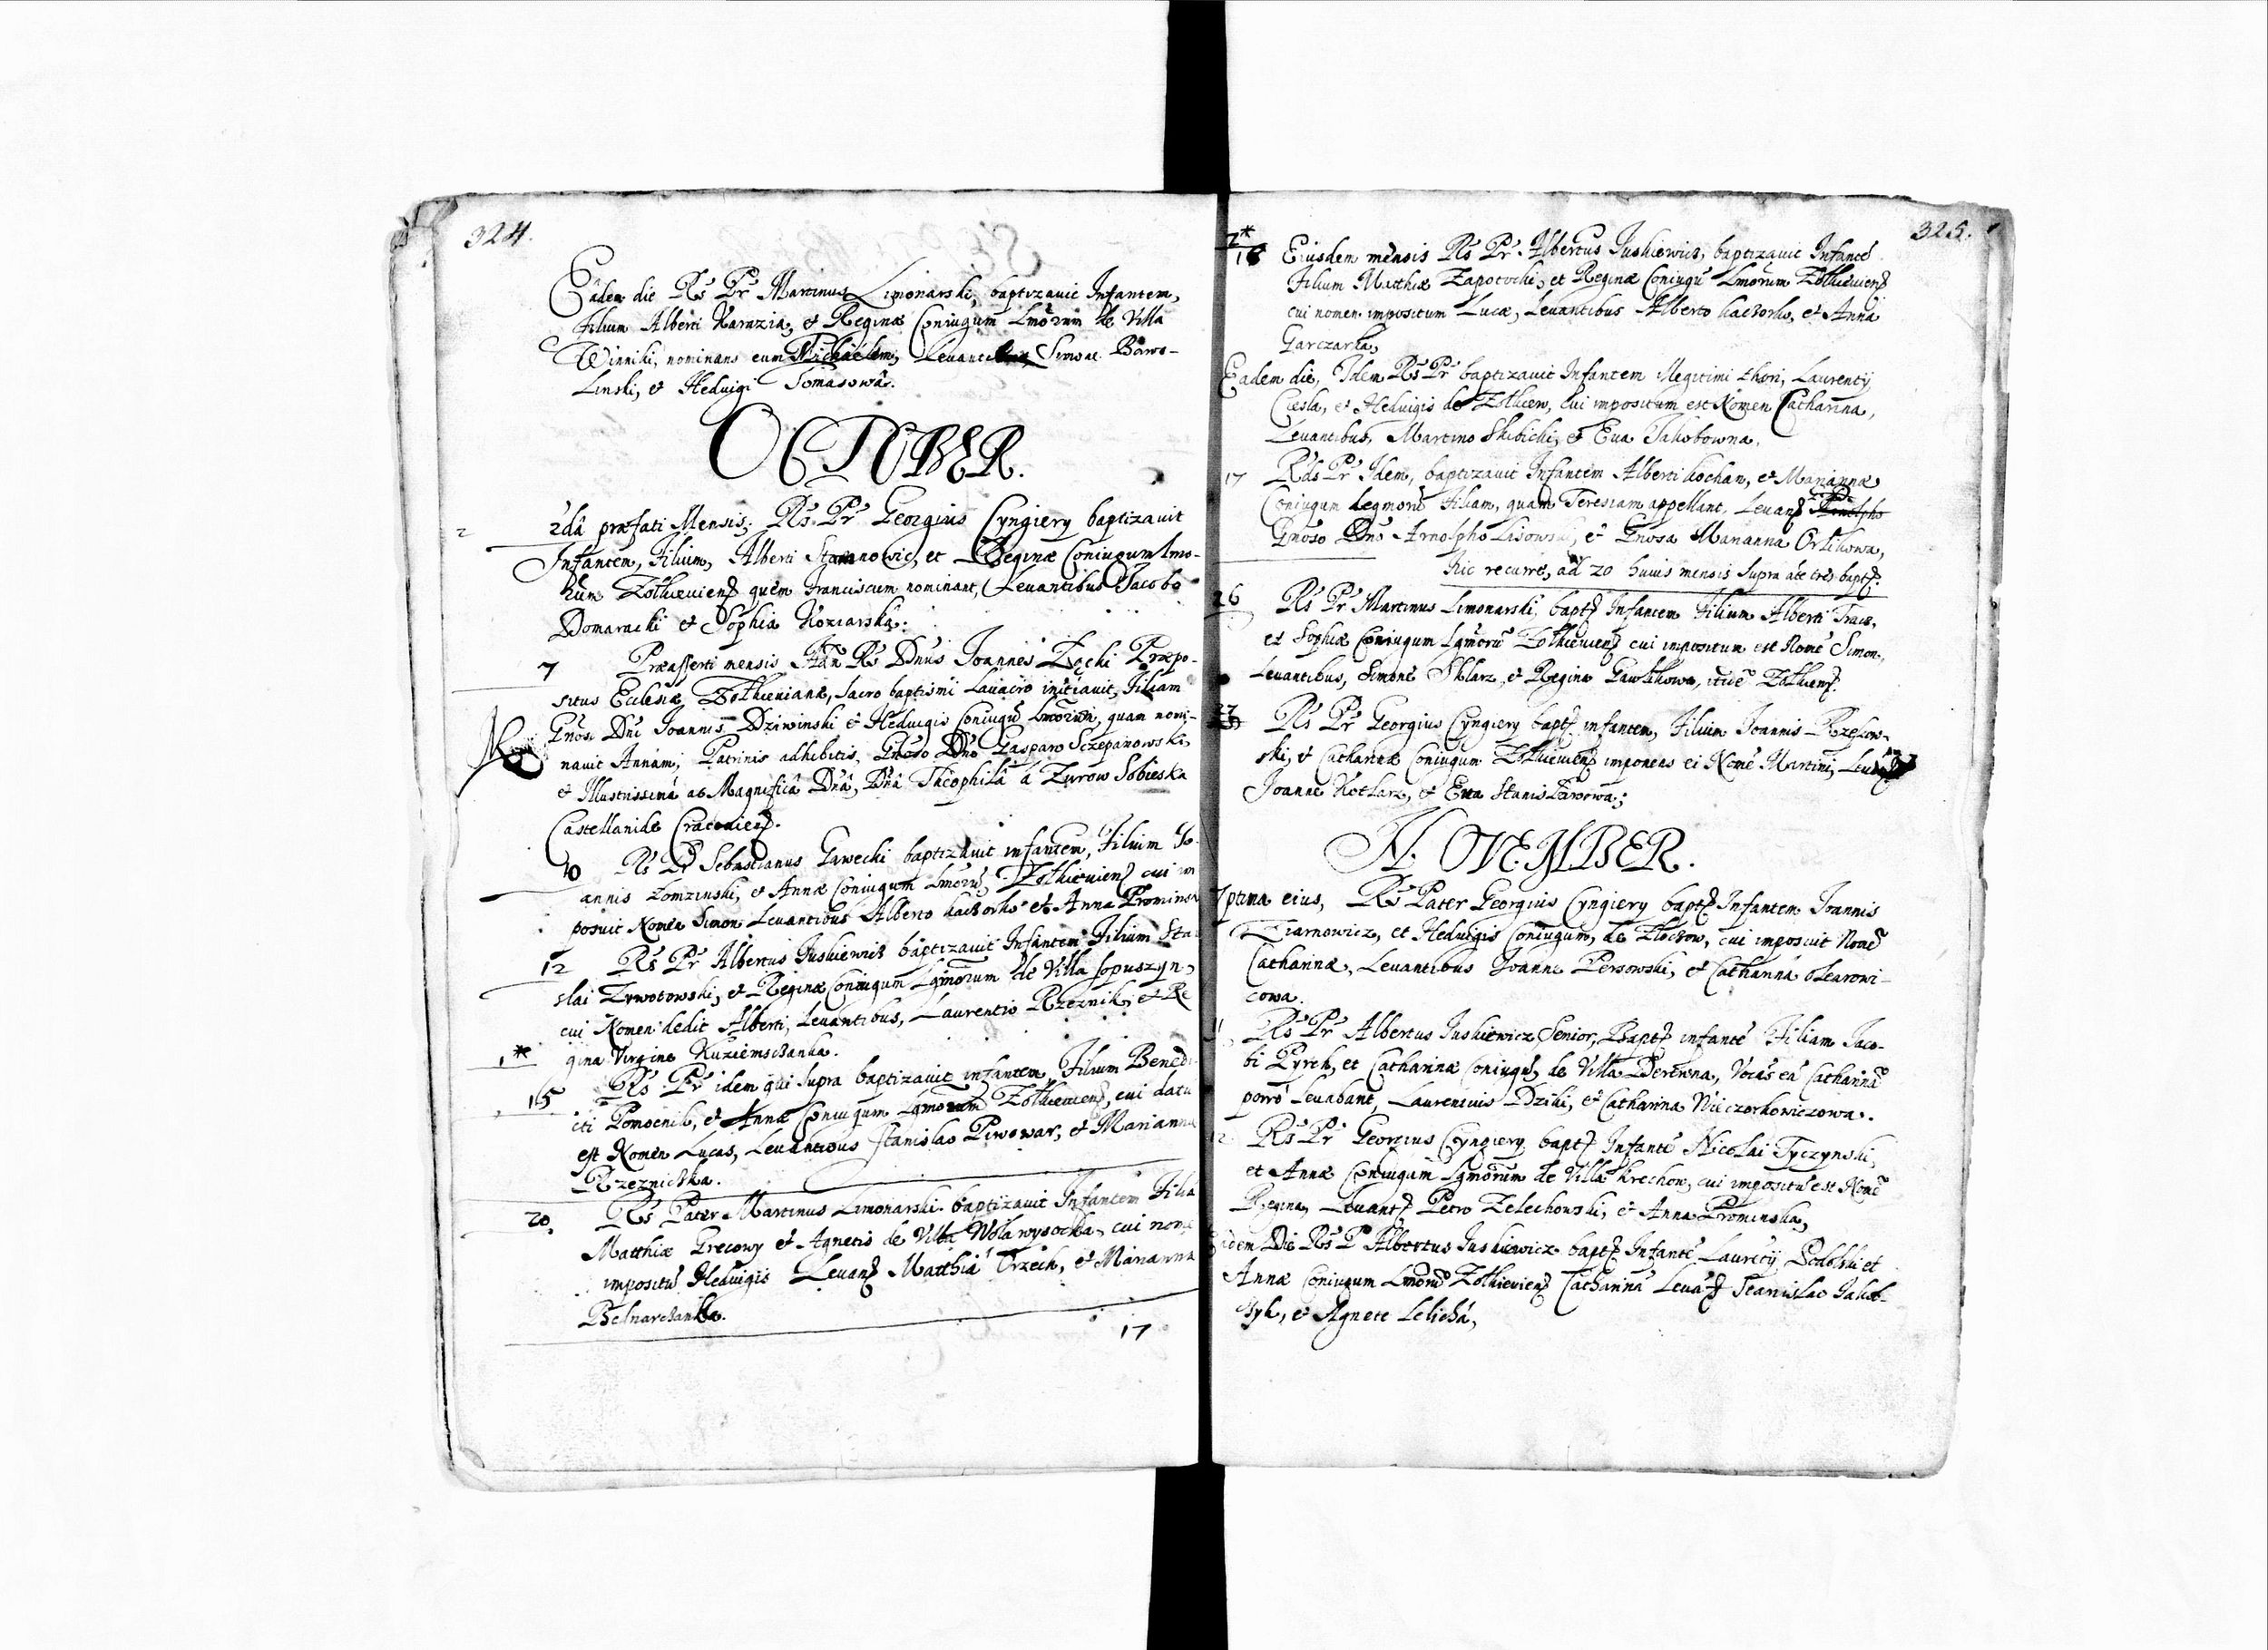 324.
Eâdem die Rs Pr Martinus Limonarski, baptizavit Infantem,
Filium Alberti Karazia, et Reginæ Coniugum Lmorum de Villa
Winniki, nominans eum Michaelem, Simone Boro-
Linski, et Heduigi Tomasowâ.
OCTOBER.
2
2dâ præfati Mensis, Rs Pr Georgius Cyngiery baptizavit
Infantem, Filium, Alberti et Reginæ Coniugum Lmo-
rum Zolkieviens quem Franciscum nominant, Levantibus Jacobo
Domaracki et Sophia Koziarska.
7 Præasserti mensis Rs Dnus Joannes Præpo-
situs Eclesiæ Zolkievianæ, Sacro baptismi Lavacro initiavit, Filiam
Gnosi Dni Joannis Dziwinski et Heduigis Coniugū Lmorum, quam nomi-
navit Annam, Patrinis adhibitis, Gnoso Dno Gasparo Sczepanowski,
et Illustrissimâ ac Magnificâ Dnâ, Dnâ Theophilâ à Zurow Sobieska
Castellanide Cracoviens.
10 Rs Pr Sebastianus Gawecki baptizavit infantem, Filium Jo-
annis Lomzinski, et Annæ Coniugum Lmorū Zolkieviens cui im
posuit Nomen Simon Levantibus Alberto et Anna Prominska
12 Rs Pr Albertus Juskiewicz baptizavit Infantem Filium Sta
slai Zywotowski, et Reginæ Coniugum Lgmorum de Villa Sopuszyn,
cui Nomen dedit Alberti, Levantibus, Laurentio Rzeznik, et Re
1* gina Virgine Kuziemsczanka.
15 Rs Pr idem qui supra baptizavit infantem, Filium Benedi
cti Pomocnik, et Annæ Coniugum Lgmorum Zolkieviens, cui datū
est Nomen Lucas, Levantibus Stanislao Piwowar, et Marianna
Rzeznicka.
20 Rs Pater Martinus Limonarski baptizavit Infantem Filiā
Matthiæ Grecowy et Agnetis de Villa Wola wysocka, cui nomē
impositū Heduigis Levans Matthiâ Orzech, et Marianna
Bednarczanka.
17
325.
2*
16 Eiusdem mensis Rs Pr Albertus Juskiewicz, baptizavit Infantē
Filium Matthiæ Zapotocki, et Reginæ Coniugū Lmorum Zolkieviens
cui nomen impositum Lucæ, Levantibus Alberto et Anna
Garczarka,
Eadem die, Idem Rs Pr baptizavit Infantem Illegitimi thori, Laurentij
Ciesla, et Heduigis de Zolkiew, cui impositum est Nomen Catharina,
Levantibus, Martino Skibicki, et Eva Jakobowna.
17 Rds Pr Idem, baptizavit Infantem Alberti Kochan, et Mariannæ
Coniugum Legmorū Filiam, quam Teresiam appellant, Levans Arnolpho
Gnoso Dno Arnolpho Lisowski, et Gnosa Marianna Orlikowa,
hic recurre, ad 20 huius mensis supra
26 Rs Pr Martinus Limonarski, bapts Infantem Filium Alberti Tracz,
et Sophiæ Coniugum Lgmorū Zolkieviens cui impositum est Nomē Simon,
Levantibus, Simone Sklarz, et Regina Gawlikowa, Zolkiens.
Rs Pr Georgius Cyngiery bapts infantem, Filium Joannis
ski, et Catharinæ Coniugum Zolkieviens imponens ei Nomē Martini,
Joanne Kotlarz, et Eva Stanislawowa;
NOVEMBER.
7ptima eius, Rs Pater Georgius Cyngiery bapts Infantem Joannis
Ziarnowicz, et Heduigis Coniugum, de Zloczow, cui imposuit Nomē
Catharinæ, Levantibus Joanne Persowski, et Catharina Olearowi-
cowa.
11 Rs Pr Albertus Juskiewicz Senior, Bapts infantē Filiam Jaco-
bi Pyrek, et Catharinæ Coniugū, de Villa Derewna, Vocās eā Catharinā
porro Levabant, Laurentius Dziki, et Catharina Wieczorkowiczowa.
12 Rs Pr Georgius Cyngiery, bapts Infantē Nicolai Tyczynski,
et Annæ Coniugum Lgmorum de Villa Krechow, cui impositū est Nomē
Regina, Levants Petro Zelechowski, et Anna Prominska,
Eadem Die Rs P Albertus Juskiewicz bapts Infantē Laurētij Podolski et
Annæ Coniugum Lmorū Zolkieviens Catharinā Stanislao
et Agnete